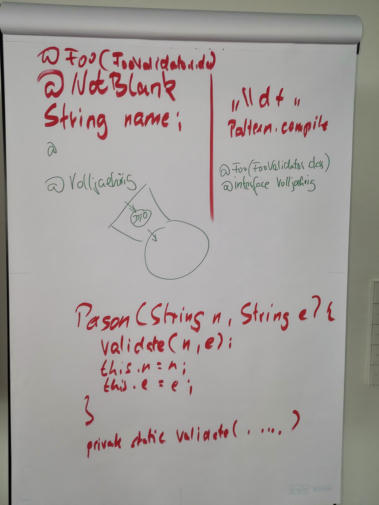 @Foo(FooValidator.class)
@NotBlank
String name;
@
@Volljaehrig
DTO
"\\d+"
Pattern.compile
@Foo(FooValidator.class)
@interface Volljährig
Person(String n, String e) {
validate(n,e);
this.n = n;
this.e = e;
}
private static validate(. .... )